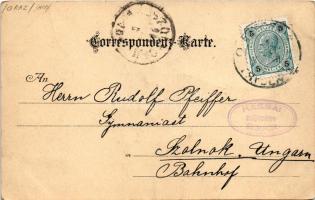 Correspondenz-Karte.
An
Herrn Rudolf Pfeiffer
Gymnasiast
Szolnok, Ungarn
Bahnhof